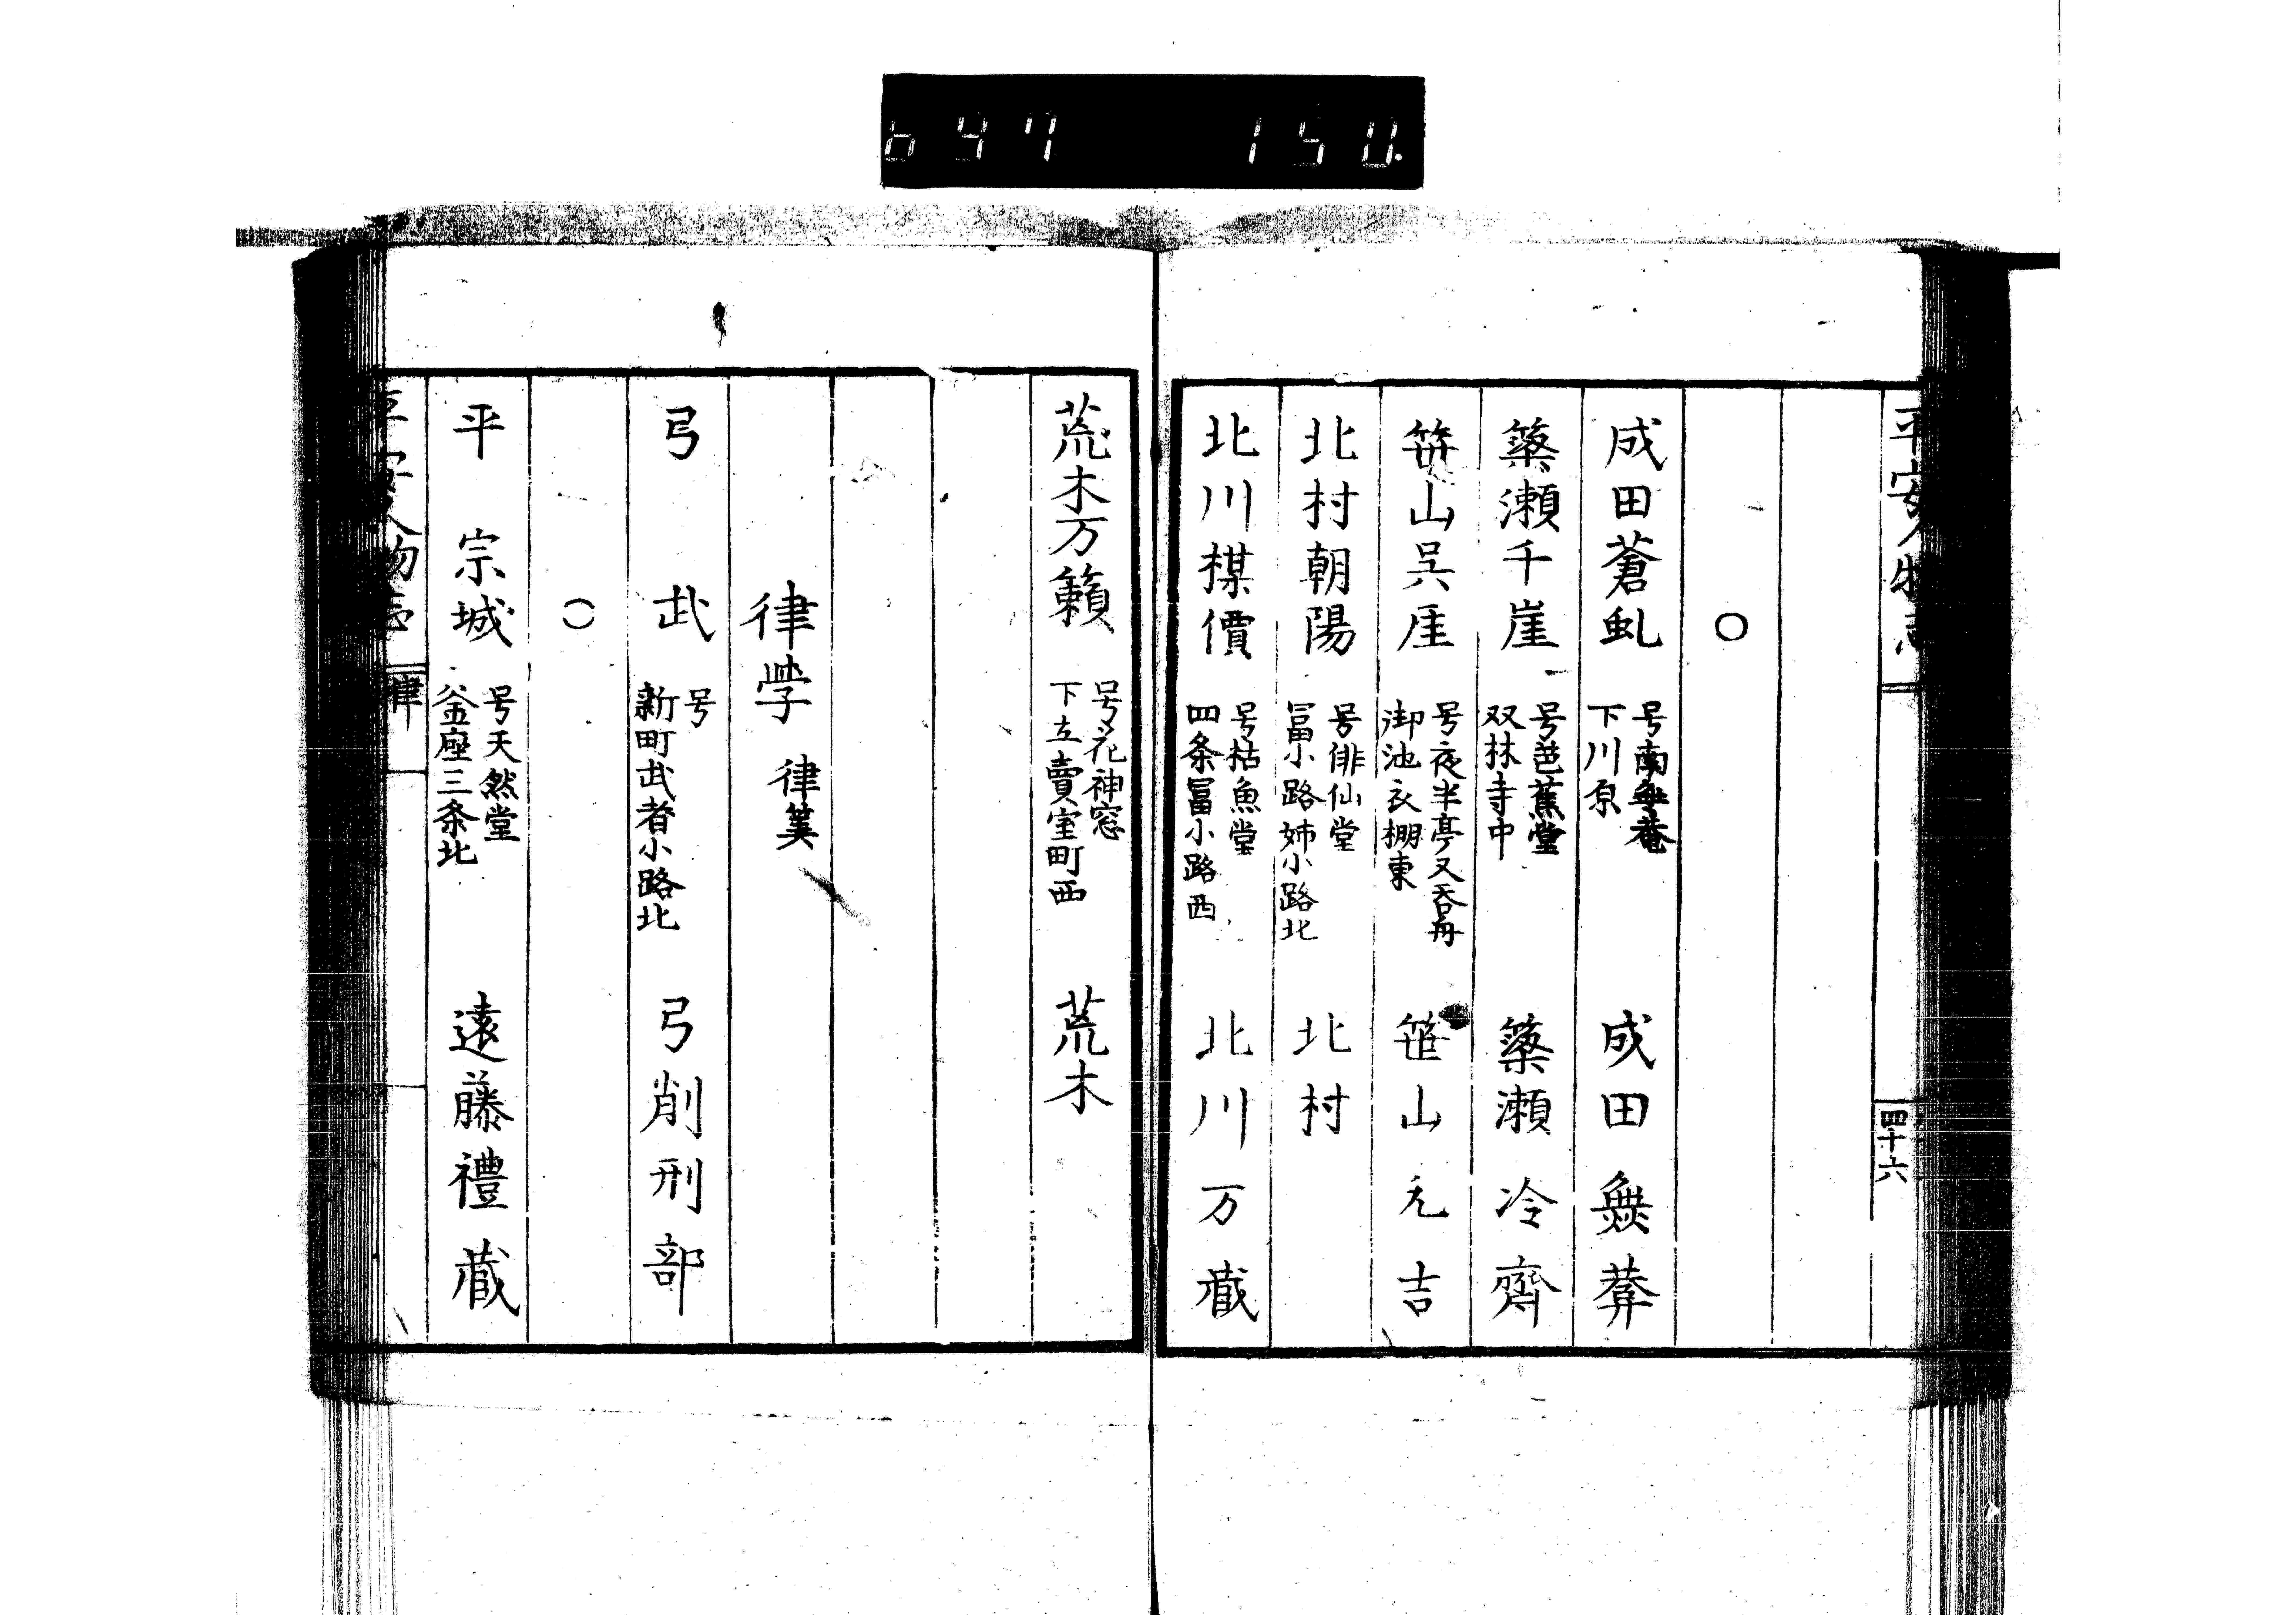 647 150.
平安人物志
四十六
○
成田蒼虬 号南無菴 下川原 成田無莾
藥瀬千崖 号芭蕉堂 双林寺中 藥瀬冷齊
笹山呉厓 号夜半亭又呑舟 御池衣棚東 笹山元吉
北村朝陽 号俳仙堂 冨小路姉小路北 北村
北川楳價 号枯魚堂 四条冨小路西 北川万蔵
荒木万籟 号花神窓 下立賣室町西 荒木
律学 律筭
弓 武 号 新町武者小路北 弓削刑部
○
平 宗城 号天然堂 釜座三条北 遠藤禮蔵
平安人物志
律